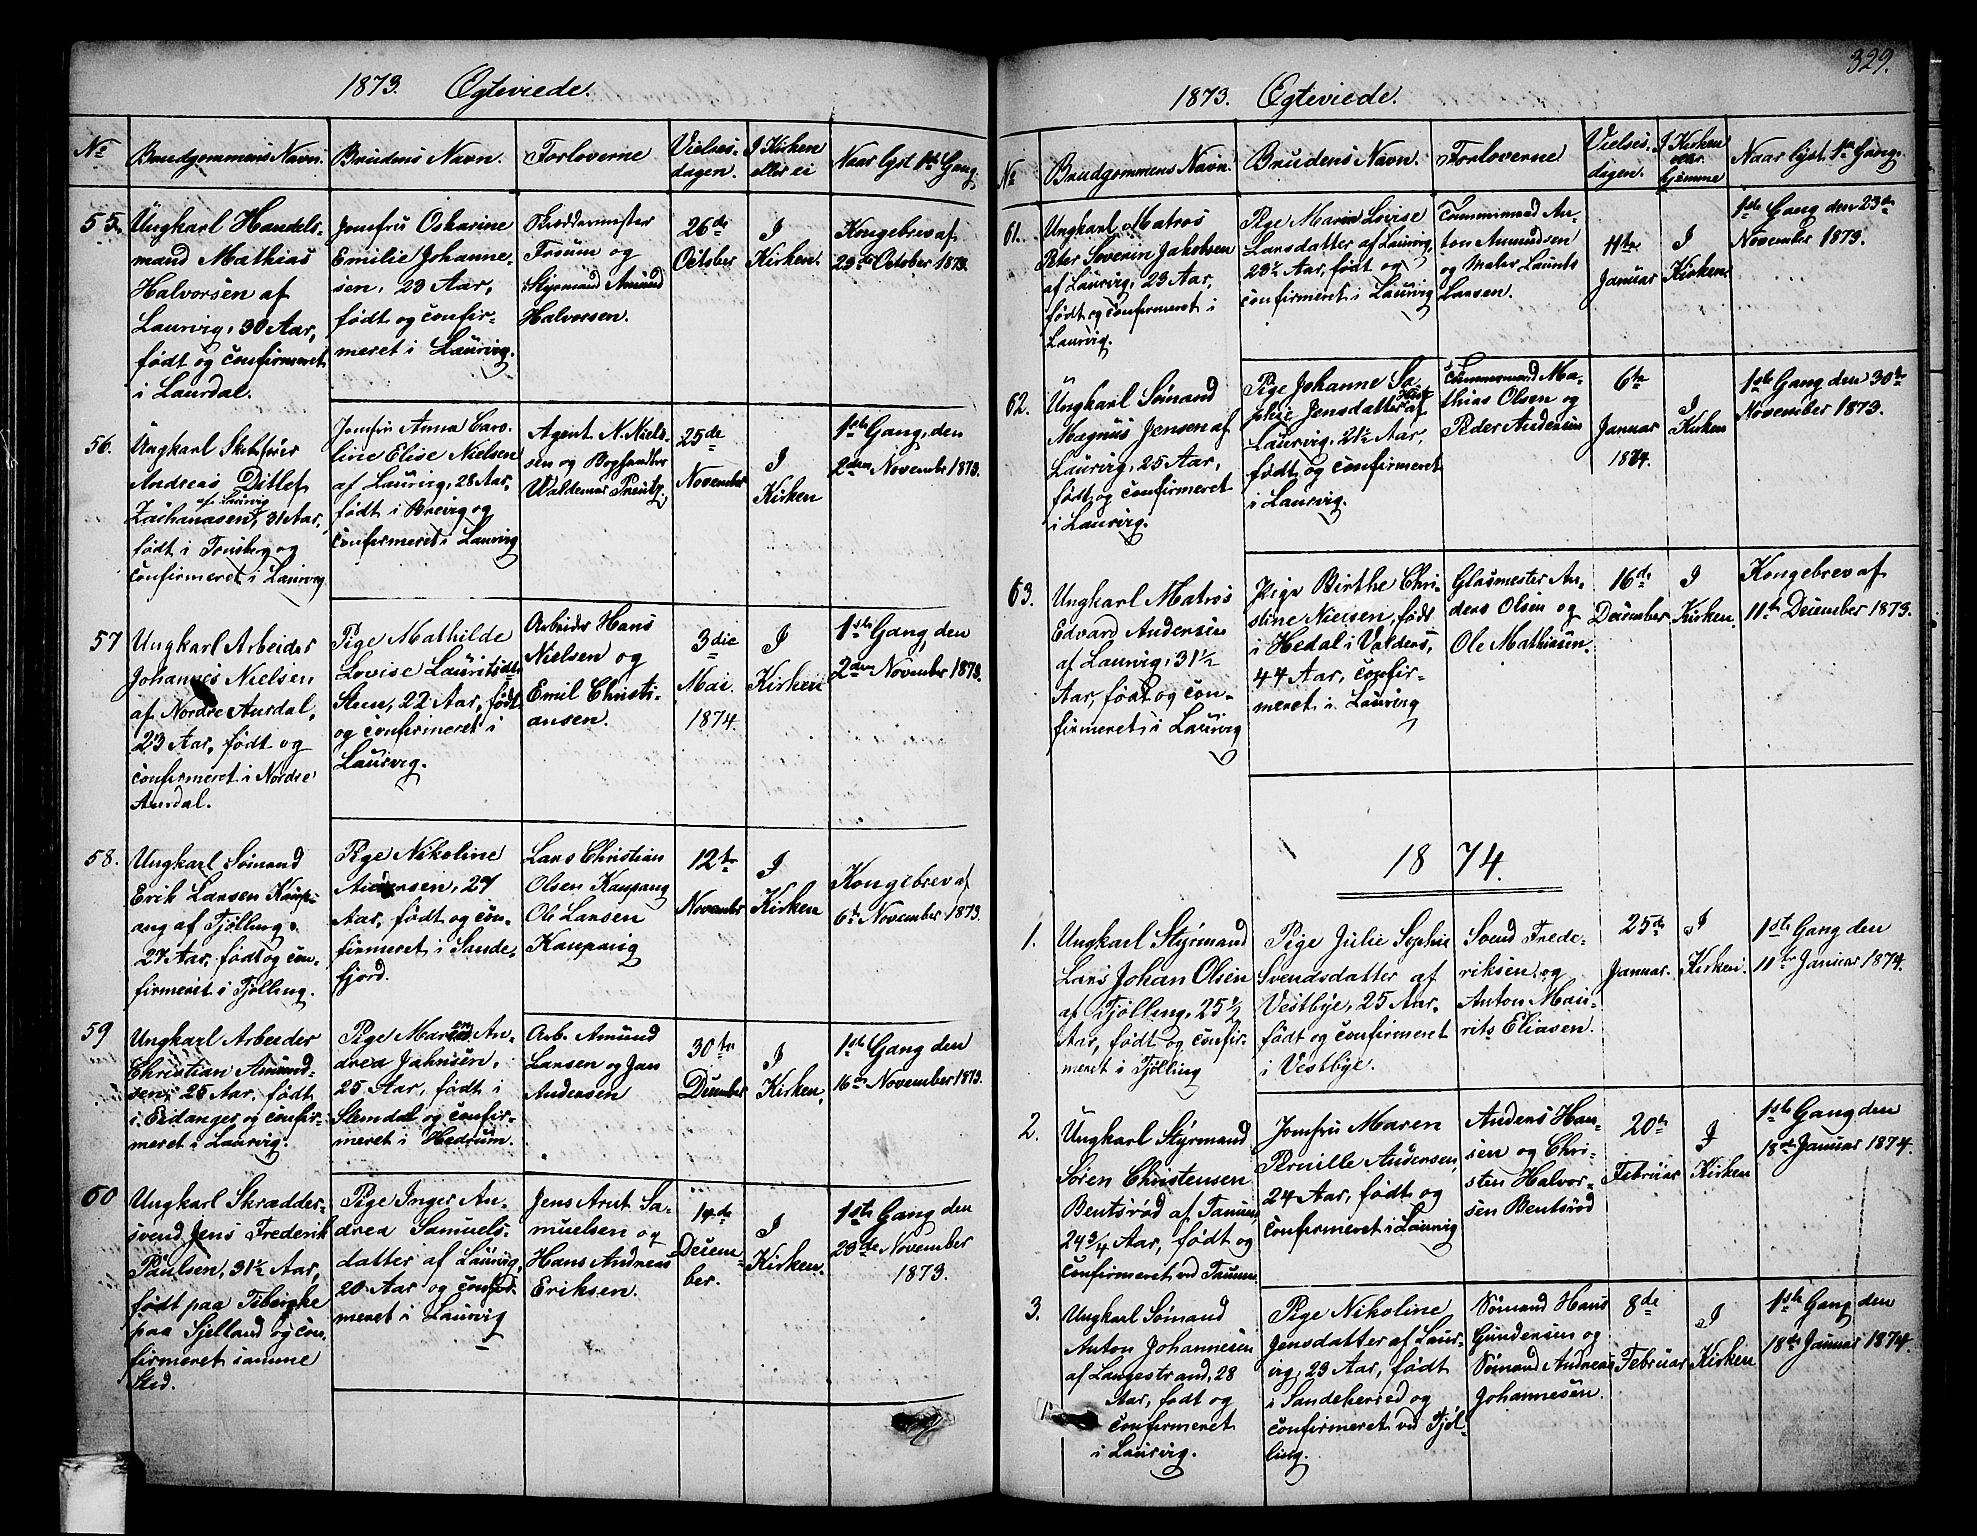 1873. Ægteviede.
No
Brudgommens Navn.
Brudens Navn.
Forloverne
Vielses-
dagen.
I Kirken
eller ei
Naar lyst 1ste Gang.
55.
Ungkarl Handels-
mand Mathias
Halvorsen af
Laurvig, 30 Aar,
født og confirmeret
i Laurdal.
Jomfru Oskarine
Emilie Johanne-
sen, 23 Aar,
født og confir-
meret i Laurvig.
Fosum og
Styrmand Amund
Halvorsen.
26de
October
I
Kirken.
Kongebrev af
23de October 1873.
56.
Ungkarl Skibsfører
Andreas Ditlef
af Laurvig
Zachariasen, 31 Aar,
født i Tønsberg og
confirmeret i Laurvig
Jomfru Anna Caro-
line Elise Nielsen
af Laurvig, 28 Aar,
født i Brevig og
confirmeret i Laurvig
Agent N. Niels-
sen og Boghandler
Waldemar Preutz.
25de
November
I
Kirken
1ste Gang, den
2den November 1873.
57
Ungkarl Arbeider
Johannes Nielsen
af Nordre Aurdal,
23 Aar, født og
confirmeret i Nordre
Aurdal.
Pige Mathilde
Lovise Lauritsdtr
Steen, 22 Aar, født
og confirmeret i
Laurvig.
Arbeider Hans
Nielsen og
Emil Christi-
ansen.
3die
Mai.
1874.
I
Kirken
1ste Gang, den
2den November 1873.
58.
Ungkarl Sømand
Erik Larsen Kaup-
ang af Tjølling.
27 Aar, født og con-
firmeret i Tjølling.
Pige Nikoline
Andersen, 27
Aar, født og con-
firmeret i Sande-
fjord.
Lars Christian
Olsen Kaupang
Ole Larsen
Kaupang
12te
November
I
Kirken
Kongebrev af
6te November 1873.
59
Ungkarl Arbeider
Christian Amund-
sen, 25 Aar, født
i Eidanger og confir-
meret i Laurvig.
Pige Maren An-
drea Jahnsen,
25 Aar, født i
Slemdal og confir-
meret i Hedrum.
Arb. Amund
Larsen og Jan
Andersen
30te
December
I
Kirken,
1ste Gang den
16de November 1873.
60
Ungkarl Skrædder-
svend Jens Frederik
Paulsen, 31½ Aar,
født paa Tibirke
paa Sjelland og con-
firmeret samme
Sted.
Pige Inger An-
drea Samuels-
datter af Laurvig,
20 Aar og confir-
meret i Laurvig
Jens Arnt Sa-
muelsen og
Hans Andreas
Eriksen.
14de
Decem-
ber.
I
Kirken.
1ste Gang den
23de November
1873.
329.
1873. Ægteviede.
No
Brudgommens Navn.
Brudens Navn.
Forloverne
Vielses-
dagen.
I Kirken
eller
hjemme
Naar lyst 1ste Gang.
61.
Ungkarl Matros
Peter Severin Jakobsen
af Laurvig, 23 Aar,
født og confirmeret i
Laurvig.
Pige Maria Lovise
Larsdatter af Laurvig,
23½ Aar, født og
confirmeret i Laurvig
Tømmermand An-
ton Amundsen
og Maler Laurits
Larsen.
11te
Januar
I
Kirken
1ste Gang den 23de
November 1873.
62.
Ungkarl Sømand
Magnus Jensen af
Laurvig, 25 Aar,
født og confirmeret
i Laurvig.
Pige Johanne So-
phie Jensdatter af
Laurvig, 21½ Aar,
født og confirmeret
i Laurvig.
Tømmermand Ma-
thias Olsen og
Peder Andersen
6te
Januar
1874.
I
Kirken
1ste Gang den 30te
November 1873.
63.
Ungkarl Matros
Edvard Andersen
af Laurvig, 31½
Aar, født og con-
firmeret i Laurvig
Pige Birthe Chri-
stine Nielsen, født
i Hedal i Valders,
44 Aar, confir-
meret i Laurvig
Glasmester An-
ders Olsen og
Ole Mathisen.
16de
December
I
Kirken.
Kongebrev af
11te December 1873.
1874.
1.
Ungkarl Styrmand
Lars Johan Olsen
af Tjølling, 25½
Aar, født og confir-
meret i Tjølling
Pige Julie Sophie
Svendsdatter af
Vestbye, 25 Aar,
født og confirmeret
i Vestbye.
Svend Frede-
riksen og
Anton Mau-
rits Eliasen.
25de
Januar.
I
Kirken.
1ste Gang den
11te Januar 1874.
2.
Ungkarl Styrmand
Søren Christensen
Bentsrød af Tanum,
24¾ Aar, født og
confirmeret ved Tanum.
Jomfru Maren
Pernille Andersen,
24 Aar, født og
confirmeret i Laurvig
Anders Han-
sen og Chri-
sten Halvor-
sen Bentsrød
20de
Februar
I
Kirken
1ste Gang den
18de Januar 1874.
3.
Ungkarl Sømand
Anton Johannesen
af Langestrand, 28
Aar, født og
confirmeret
i Laurvig.
Pige Nikoline
Jensdatter af Laur-
vig, 23 Aar, født
i Sandeherred og
confirmeret ved Tjøl-
ling.
Sømand Hans
Gundersen og
Sømand Andreas
Johannesen.
8de
Februar
I
Kirken
1ste Gang den
18de Januar 1874.